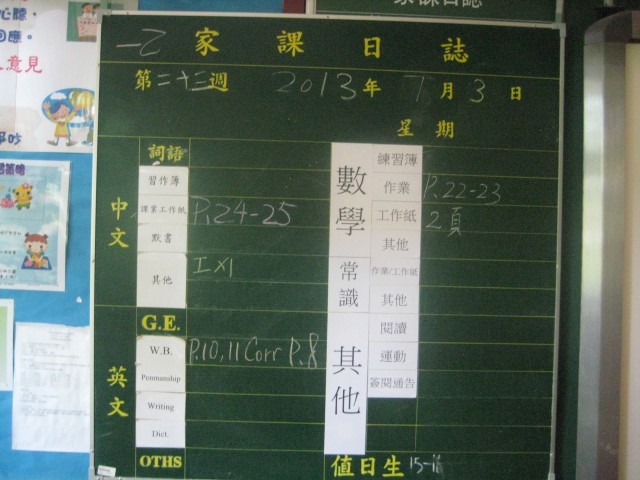 心聽、
回應。
意見
家課日誌
一乙 家課日誌
第二十三週 2013年 7月3日
星期
中文
詞語
習作簿
課業工作紙 P.24-25
默書
其他 工X1
英文
G.E.
W.B. P.10,11 Corr P.8
Penmanship
Writing
Dict.
OTHS
數學
練習簿
作業 P.22-23
工作紙 2頁
其他
常識
作業/工作紙
其他
其他
閱讀
運動
簽閱通告
值日生 15-16